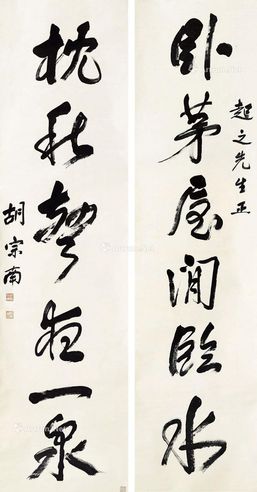 起之先生正
卧茅屋閒臨水
枕秋聲夜一泉
胡宗南